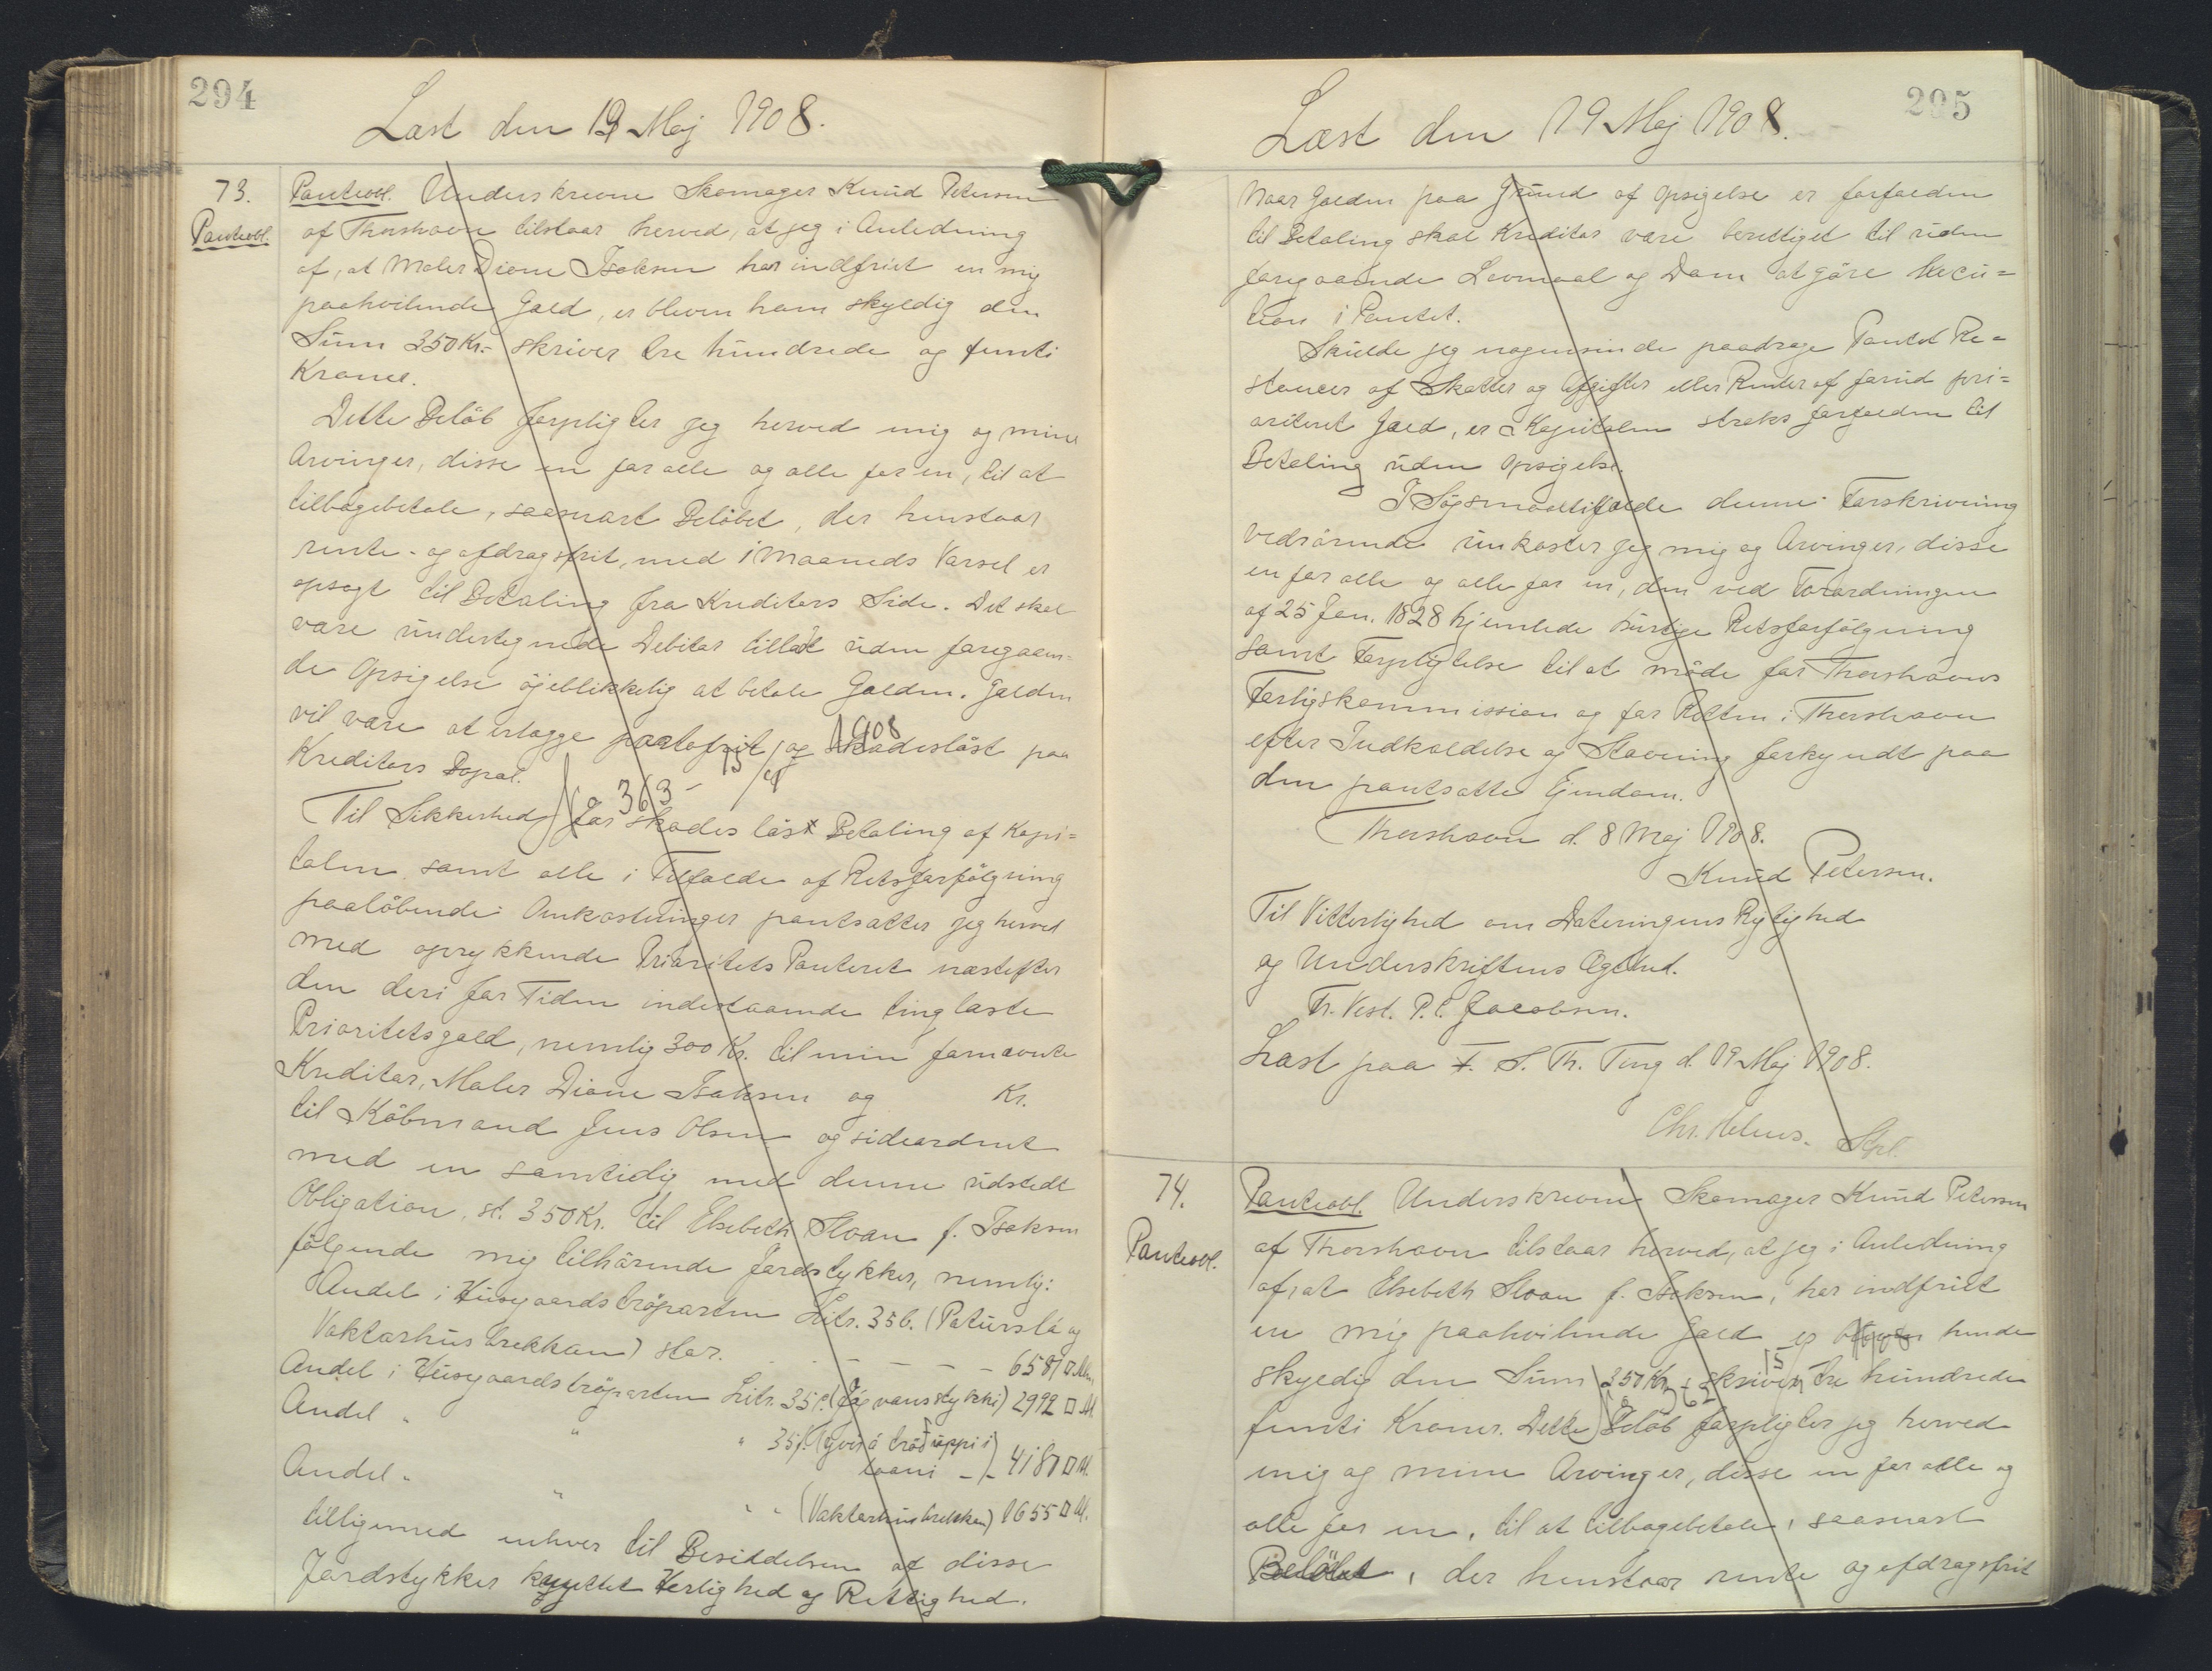 294
Læst den 19 Maj 1908.
73.
Panteobl.
Panteobl. Underskrevne Skomager Knud Petersen
af Thorshavn tilstaar herved, at jeg i Anledning
af, at Maler Dione Isaksen har indfriet en mig
paahvilende Gæld, er bleven ham skyldig den
Sum 350 Kr. - skriver tre hundrede og femti
Kroner.
Dette Beløb forpligter jeg herved mig og mine
Arvinger, disse en for alle og alle for en, til at
tilbagebetale, saasnart Beløbet, der henstaar
rente- og afdragsfrit, med 1 Maaneds Varsel er
opsagt til Betaling fra Kreditors Side. Det skal
være undertegnede Debitor tilladt uden foregaaen-
de Opsigelse øjeblikkelig at betale Gælden. Gælden
vil være at erlægge portofrit og skadesløst paa
Kreditors Bopæl.
å 363 - 15/9 1908
Til Sikkerhed for skadesløs Betaling af Kapi-
talen samt alle i Tilfælde af Retsforfølgning
paaløbende Omkostninger pantsætter jeg herved
med oprykkende Prioritets Panteret næstefter
den deri for Tiden indestaaende tinglæste
Prioritetsgæld, nemlig 300 Kr. til min fornævnte
Kreditor, Maler Dione Isaksen og Kr.
til Købmand Jens Olsen og sideordnet
med en samtidig med denne udstedt
Obligation, st. 350 Kr. til Elsebeth Sloan f. Isaksen
følgende mig tilhørende Jordstykker, nemlig:
Andel i Husgaards trøparten Litr. 35b. (Paturslá og
Vaktarhús brekkan) stor. - - - - - 6581 □ Al.
Andel i Husgaards trøparten Litr. 35e. ( ) 2992 □ Al.
Andel " " " 35f. (Yviri á trøð uppi i
loani - - 4180 □ Al.
Andel " " " " (Vaktarhúsbrekkan) 1655 □ Al.
tilligemed enhver til Besiddelsen af disse
Jordstykker knyttet Herlighed og Rettighed.
295
Læst den 19 Maj 1908.
Naar Gælden paa Grund af Opsigelse er forfalden
til Betaling skal Kreditor være berettiget til uden
foregaaende Lovmaal og Dom at gøre Execu-
tion i Pantet.
Skulde jeg nogensinde paadrage Pantet Re-
stancer af Skatter og Afgifter eller Renter af forud pri-
oriteret Gæld, er Kapitalen straks forfalden til
Betaling uden Opsigelse.
I Søgsmaalstilfælde denne Forskrivning
vedrørende underkaster jeg mig og Arvinger, disse
en for alle og alle for en, den ved Forordningen
af 25 Jan. 1828 hjemlede hurtige Retsforfølgning
samt Forpligtelse til at møde for Thorshavns
Forligskommission og for Retten i Thorshavn
efter Indkaldelse og Stævning forkyndt paa
den pantsatte Ejendom.
Thorshavn d. 8 Maj 1908.
Knud Petersen.
Til Vitterlighed om Dateringens Rigtighed
og Underskriftens Ægthed.
Fr. Vest. P. C. Jacobsen.
Læst paa F. S. Th. Ting d. 19 Maj 1908.
Chr.
74.
Panteobl.
Panteobl. Underskrevne Skomager Knud Petersen
af Thorshavn tilstaar herved, at jeg i Anledning
af, at Elsebeth Sloan f. Isaksen, har indfriet
en mig paahvilende Gæld er bleven hende
skyldig den Sum 350 Kr. - skriver tre hundrede
femti Kroner. Dette Beløb forpligter jeg herved
mig og mine Arvinger, disse en for alle og
alle for en, til at tilbagebetale, saasnart
Beløbet, der henstaar rente og afdragsfrit